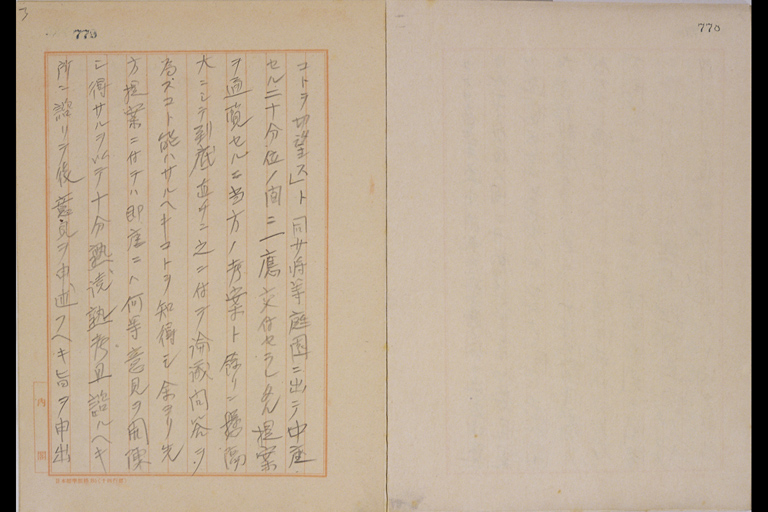 770
770
コトヲ切望ス」ト同少将等庭園ニ出テ中座
セル二十分位ノ間ニ一應交付セラレタル提案
ヲ通覧セルニ当方ノ考案ト餘リニ懸隔
大ニシテ到底直チニ之ニ付テ論議問答ヲ
為スコト能ハサルヘキコトヲ知得シ余ヨリ先
方提案ニ付テハ即座ニハ何等意見ヲ開陳
シ得サルヲ以テ十分熟読熟考且諮ルヘキ
所ニ諮リタル後意見ヲ申述フヘキ旨ヲ申出
内閣